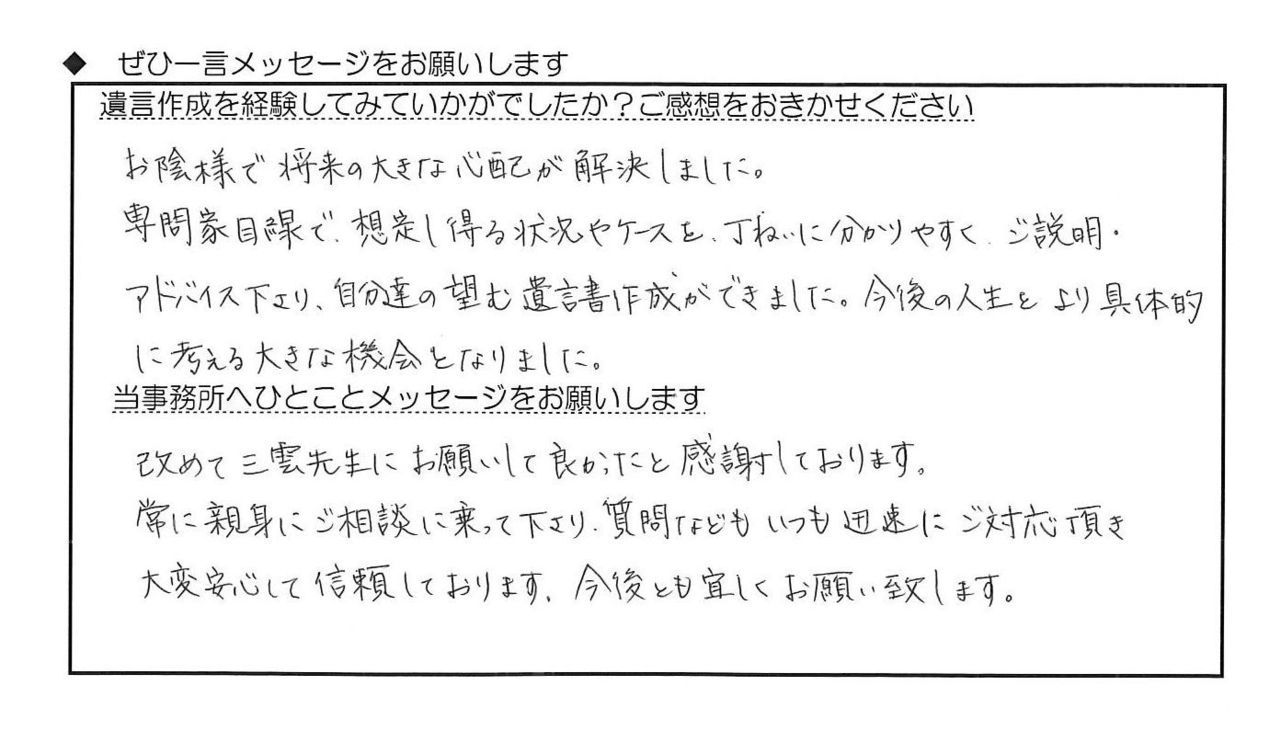 ◆ ぜひ一言メッセージをお願いします
遺言作成を経験してみていかがでしたか？ご感想をおきかせください
お陰様で将来の大きな心配が解決しました。
専門家目線で、想定し得る状況やケースを、丁ねいに分かりやすく、ご説明・
アドバイス下さり、自分達の望む遺言書作成ができました。今後の人生をより具体的
に考える大きな機会となりました。
当事務所へひとことメッセージをお願いします
改めて三雲先生にお願いして良かったと感謝しております。
常に親身にご相談に乗って下さり、質問などもいつも迅速にご対応頂き
大変安心して信頼しております。今後とも宜しくお願い致します。